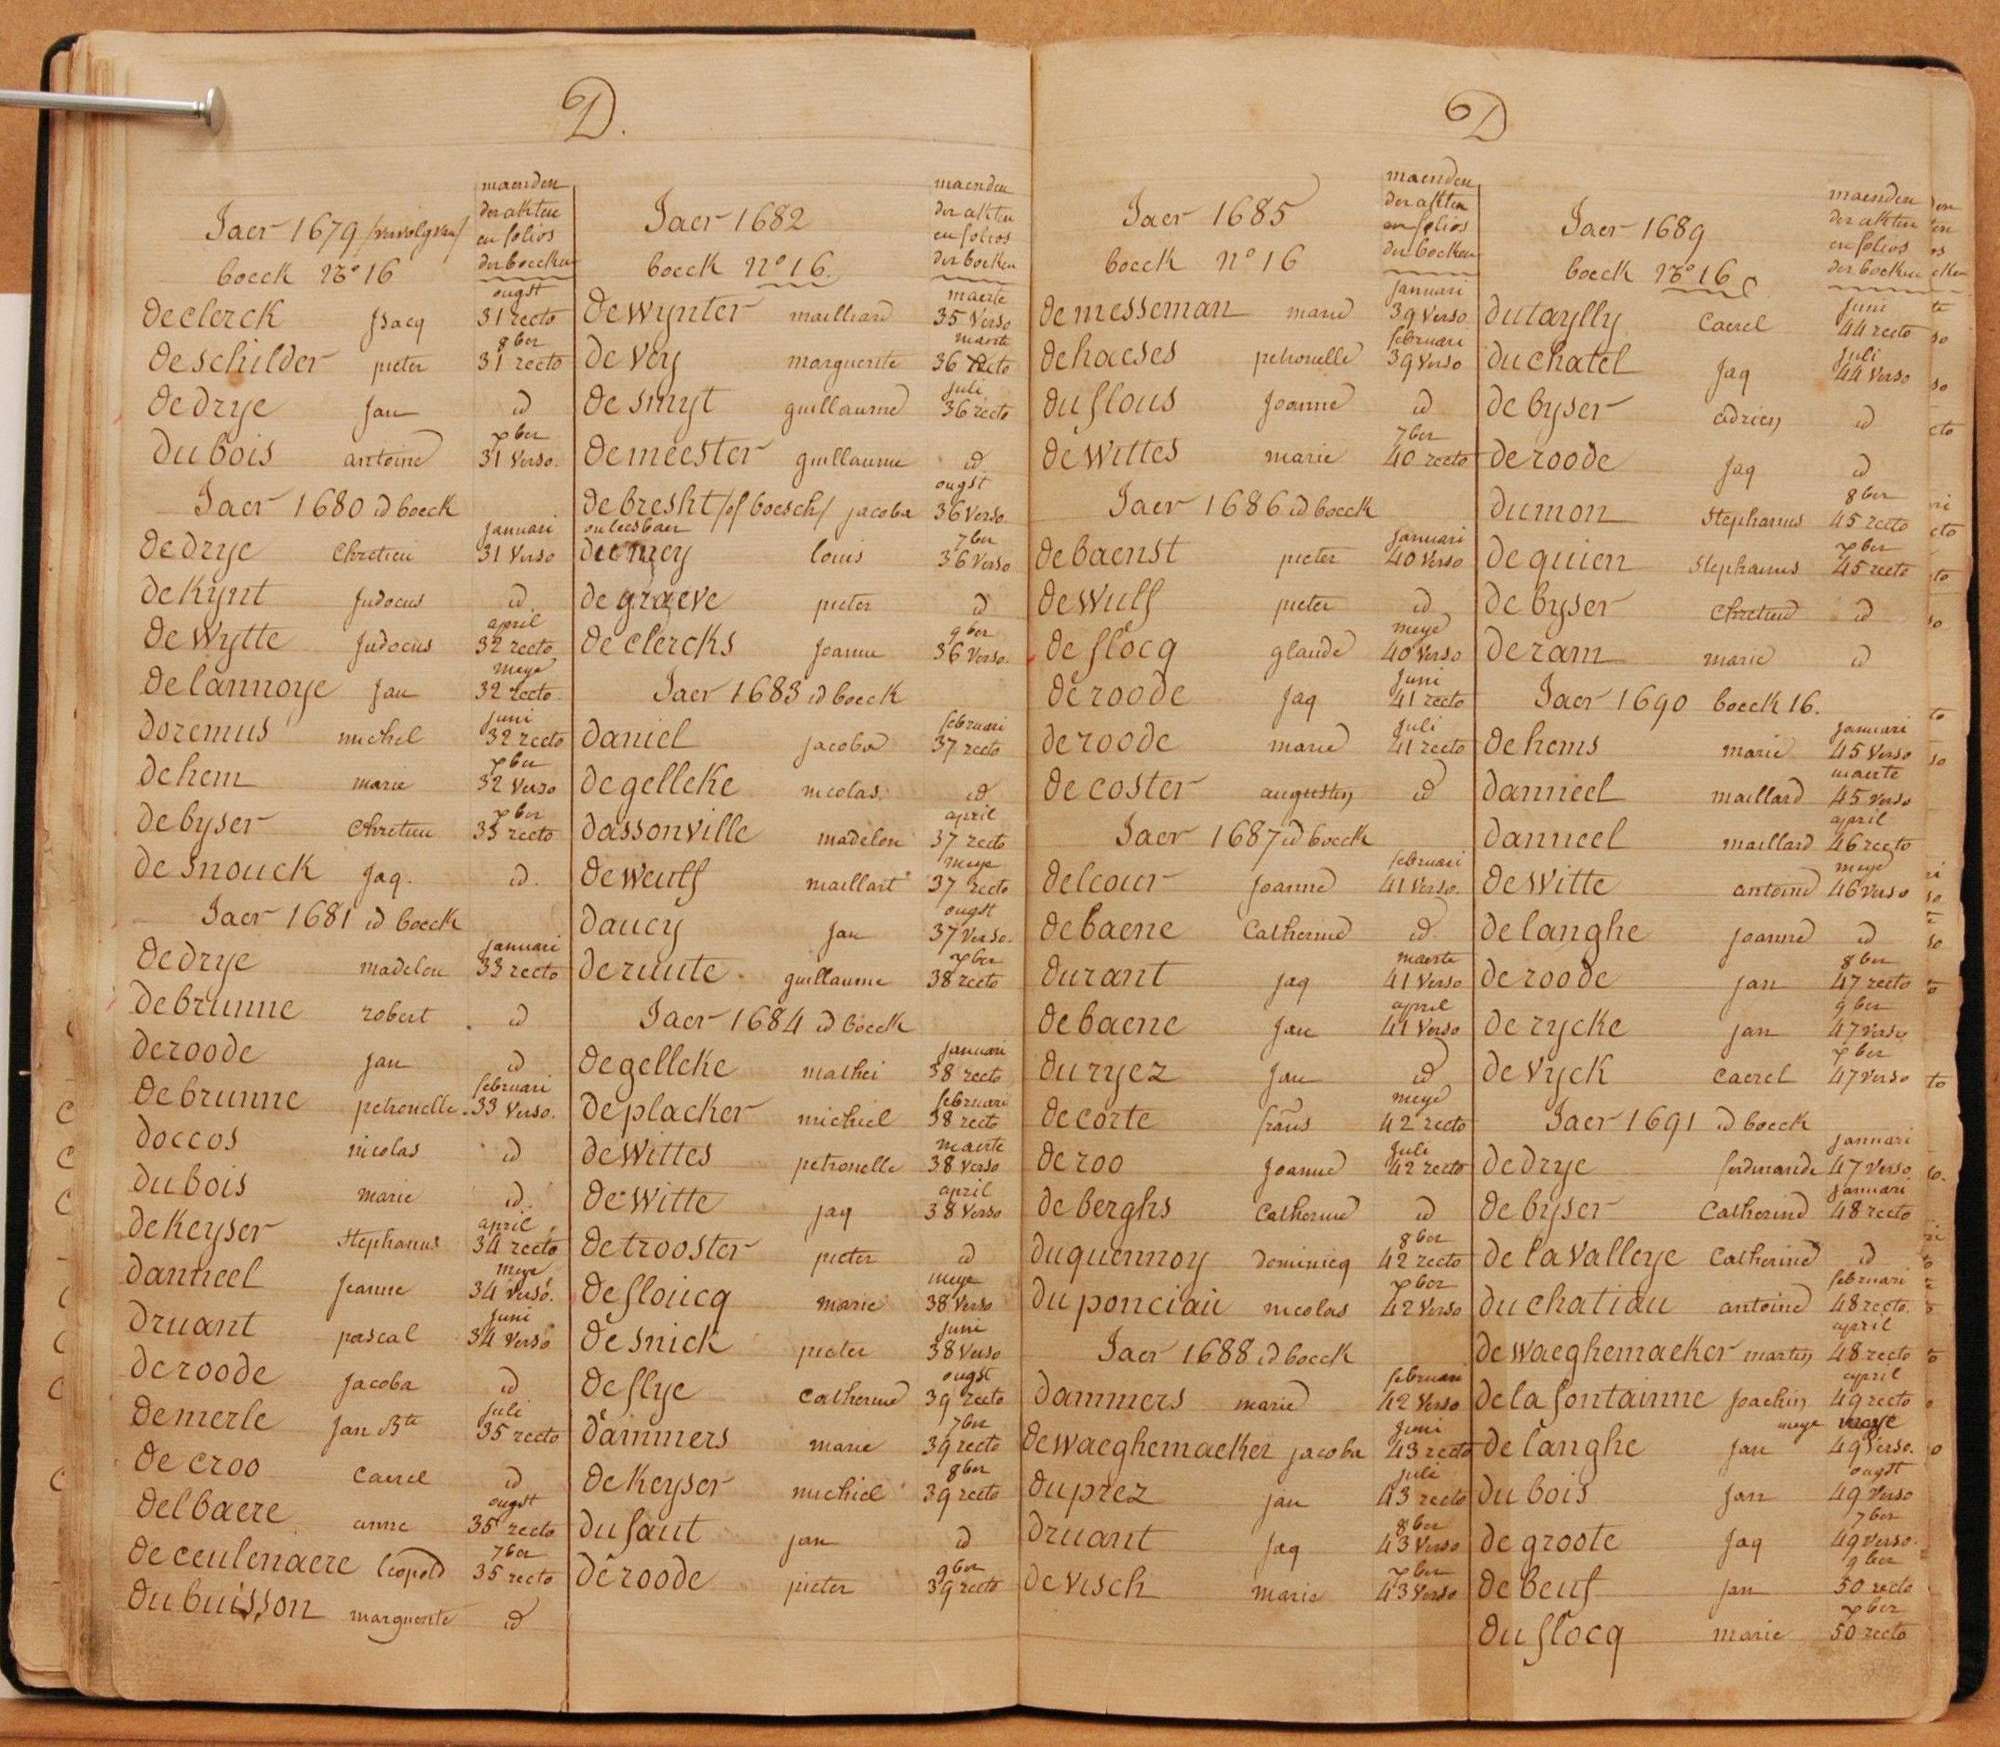 D.
Jaer 1679 /vervolg van/
boeck No 16
maenden
der akten
en folios
der boecken
declerck jsacq ougst 31 recto
deschilder pieter 8ber 31 recto
dedrye jan id
dubois antoine xber 31 verso.
Jaer 1680 id boeck
dedrye chretien januari 31 verso
dekynt judocus id
dewytte judocus april 32 recto
delannoye jan meye 32 recto
doremus michel juni 32 recto
dehem marie xber 32 verso
debyser chretien xber 33 recto
desnouck jaq. id.
Jaer 1681 id boeck
dedrye madelon januari 33 recto
debrunne robert id
deroode jan id
debrunne petronelle februari 33 verso.
doccos nicolas id
dubois marie id.
dekeyser stephanus april 34 recto
danneel jeanne meye 34 verso.
druant pascal juni 34 verso
deroode jacoba id
demerle jan Bte juli 35 recto
decroo caerel id
delbaere anne ougst 35 recto
deceulenaere leopold 7ber 35 recto
dubuisson marguerite id
Jaer 1682
boeck no 16.
maenden
der akten
en folios
der boeken
dewynter mailliard maerte 35 verso
devey marguerite maerte 36 recto
desmyt guillaume juli 36 recto
demeester guillaume id
debresht /of boesch/ jacoba ougst 36 verso.
onleesbaer
louis 7ber 36 verso
degraeve pieter id
declercks joanne 9ber 36 verso.
Jaer 1683 id boeck
daniel jacoba februari 37 recto
degelleke nicolas. id
dassonville madelon april 37 recto
deweulf maillart meye 37 recto
daucy jan ougst 37 verso.
deruute guillaume xber 38 recto
Jaer 1684 id boeck
degelleke mathei januari 38 recto
deplacker michiel februari 38 recto
dewittes petronelle maerte 38 verso
dewitte jaq april 38 verso
detrooster pieter id
defloucq marie meye 38 verso
desnick pieter juni 38 verso
deflye catherine ougst 39 recto
dammers marie 7ber 39 recto
dekeyser michiel 8ber 39 recto
dufaut jan id
deroode pieter 9ber 39 recto
D
Jaer 1685
boeck no 16
maenden
der akten
en folios
der boeken
demesseman marie januari 39 verso
dehaeses petronelle februari 39 verso
duflous joanne id
dewittes marie 7ber 40 recto
Jaer 1686 id boeck
debaenst pieter januari 40 verso
dewulf pieter id
deflocq glaude meye 40 verso
deroode jaq juni 41 recto
deroode marie juli 41 recto
decoster augustin id
Jaer 1687 id boeck
delcour joanne februari 41 verso.
debaene catherine id
durant jaq maerte 41 verso
debaene jan april 41 verso
duryez jan id
decorte frans meye 42 recto
deroo joanne juli 42 recto
deberghs catherine id
duquennoy dominicq 8ber 42 recto
duponciau nicolas xber 42 verso
Jaer 1688 id boeck
dammers marie februari 42 verso
dewaeghemaeker jacoba juni 43 recto
duprez jan juli 43 recto
druant jaq 8ber 43 verso
devisch marie xber 43 verso
Jaer 1689
boeck No 16
maenden
der akten
en folios
der boeken
dutaylly caerel juni 44 recto
duchatel jaq juli 44 verso
debyser adrien id
deroode jaq id
dumon stephanus 8ber 45 recto
dequien stephanus xber 45 recto
debyser chretien id
deram marie id
Jaer 1690 boeck 16.
dehems marie januari 45 verso
danneel maillard maerte 45 verso
danneel maillard april 46 recto
dewitte antoine meye 46 verso
delanghe joanne id
deroode jan 8ber 47 recto
derycke jan 9ber 47 verso
devyck caerel xber 47 verso
Jaer 1691 id boeck
dedrye ferdinande januari 47 verso
debyser catherine januari 48 recto
delavalleye catherine id
duchatiau antoine februari 48 recto.
dewaeghemaeker martin april 48 recto
delafontainne joachin april 49 recto
delanghe jan meye meye 49 verso.
dubois jan ougst 49 verso
degroote jaq 7ber 49 verso.
debeuf jan 9ber 50 recto
duflocq marie xber 50 recto